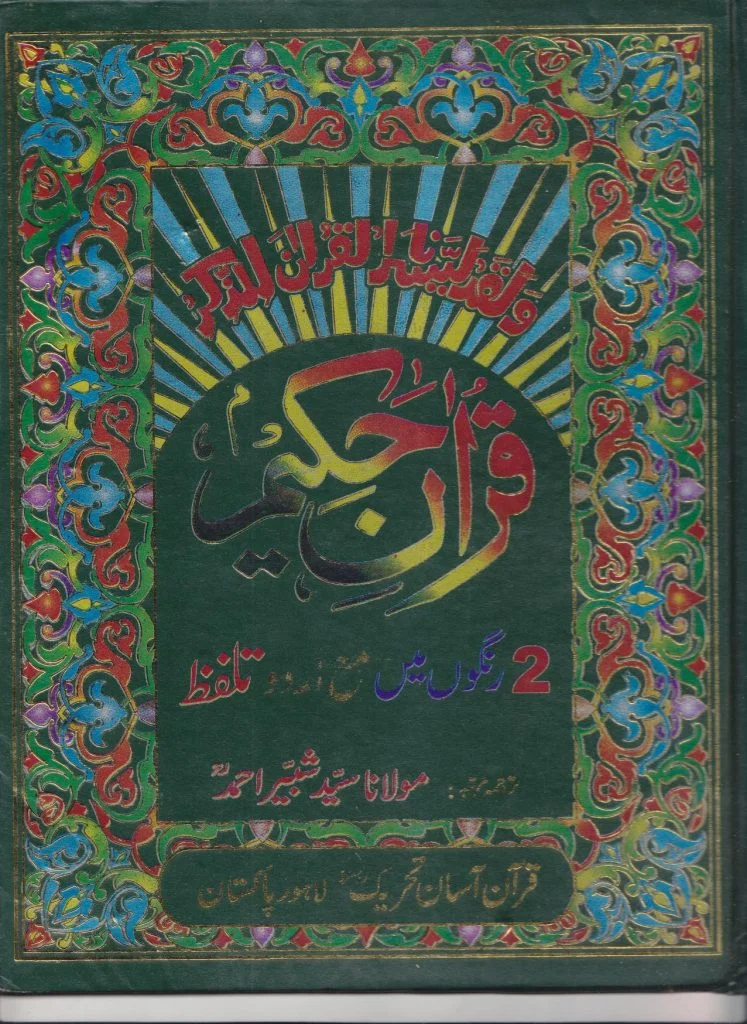 وَلَقَد يَسَّرنَا القُرانَ لِلذِّكرِ
قُرانِ حَکِیم
2 رنگوں میں مع اردو تلفظ
ترجمہ مرتبہ: مولانا سیّد شبّیر احمدؒ
قرآن آسان تحریک لاہور پاکستان